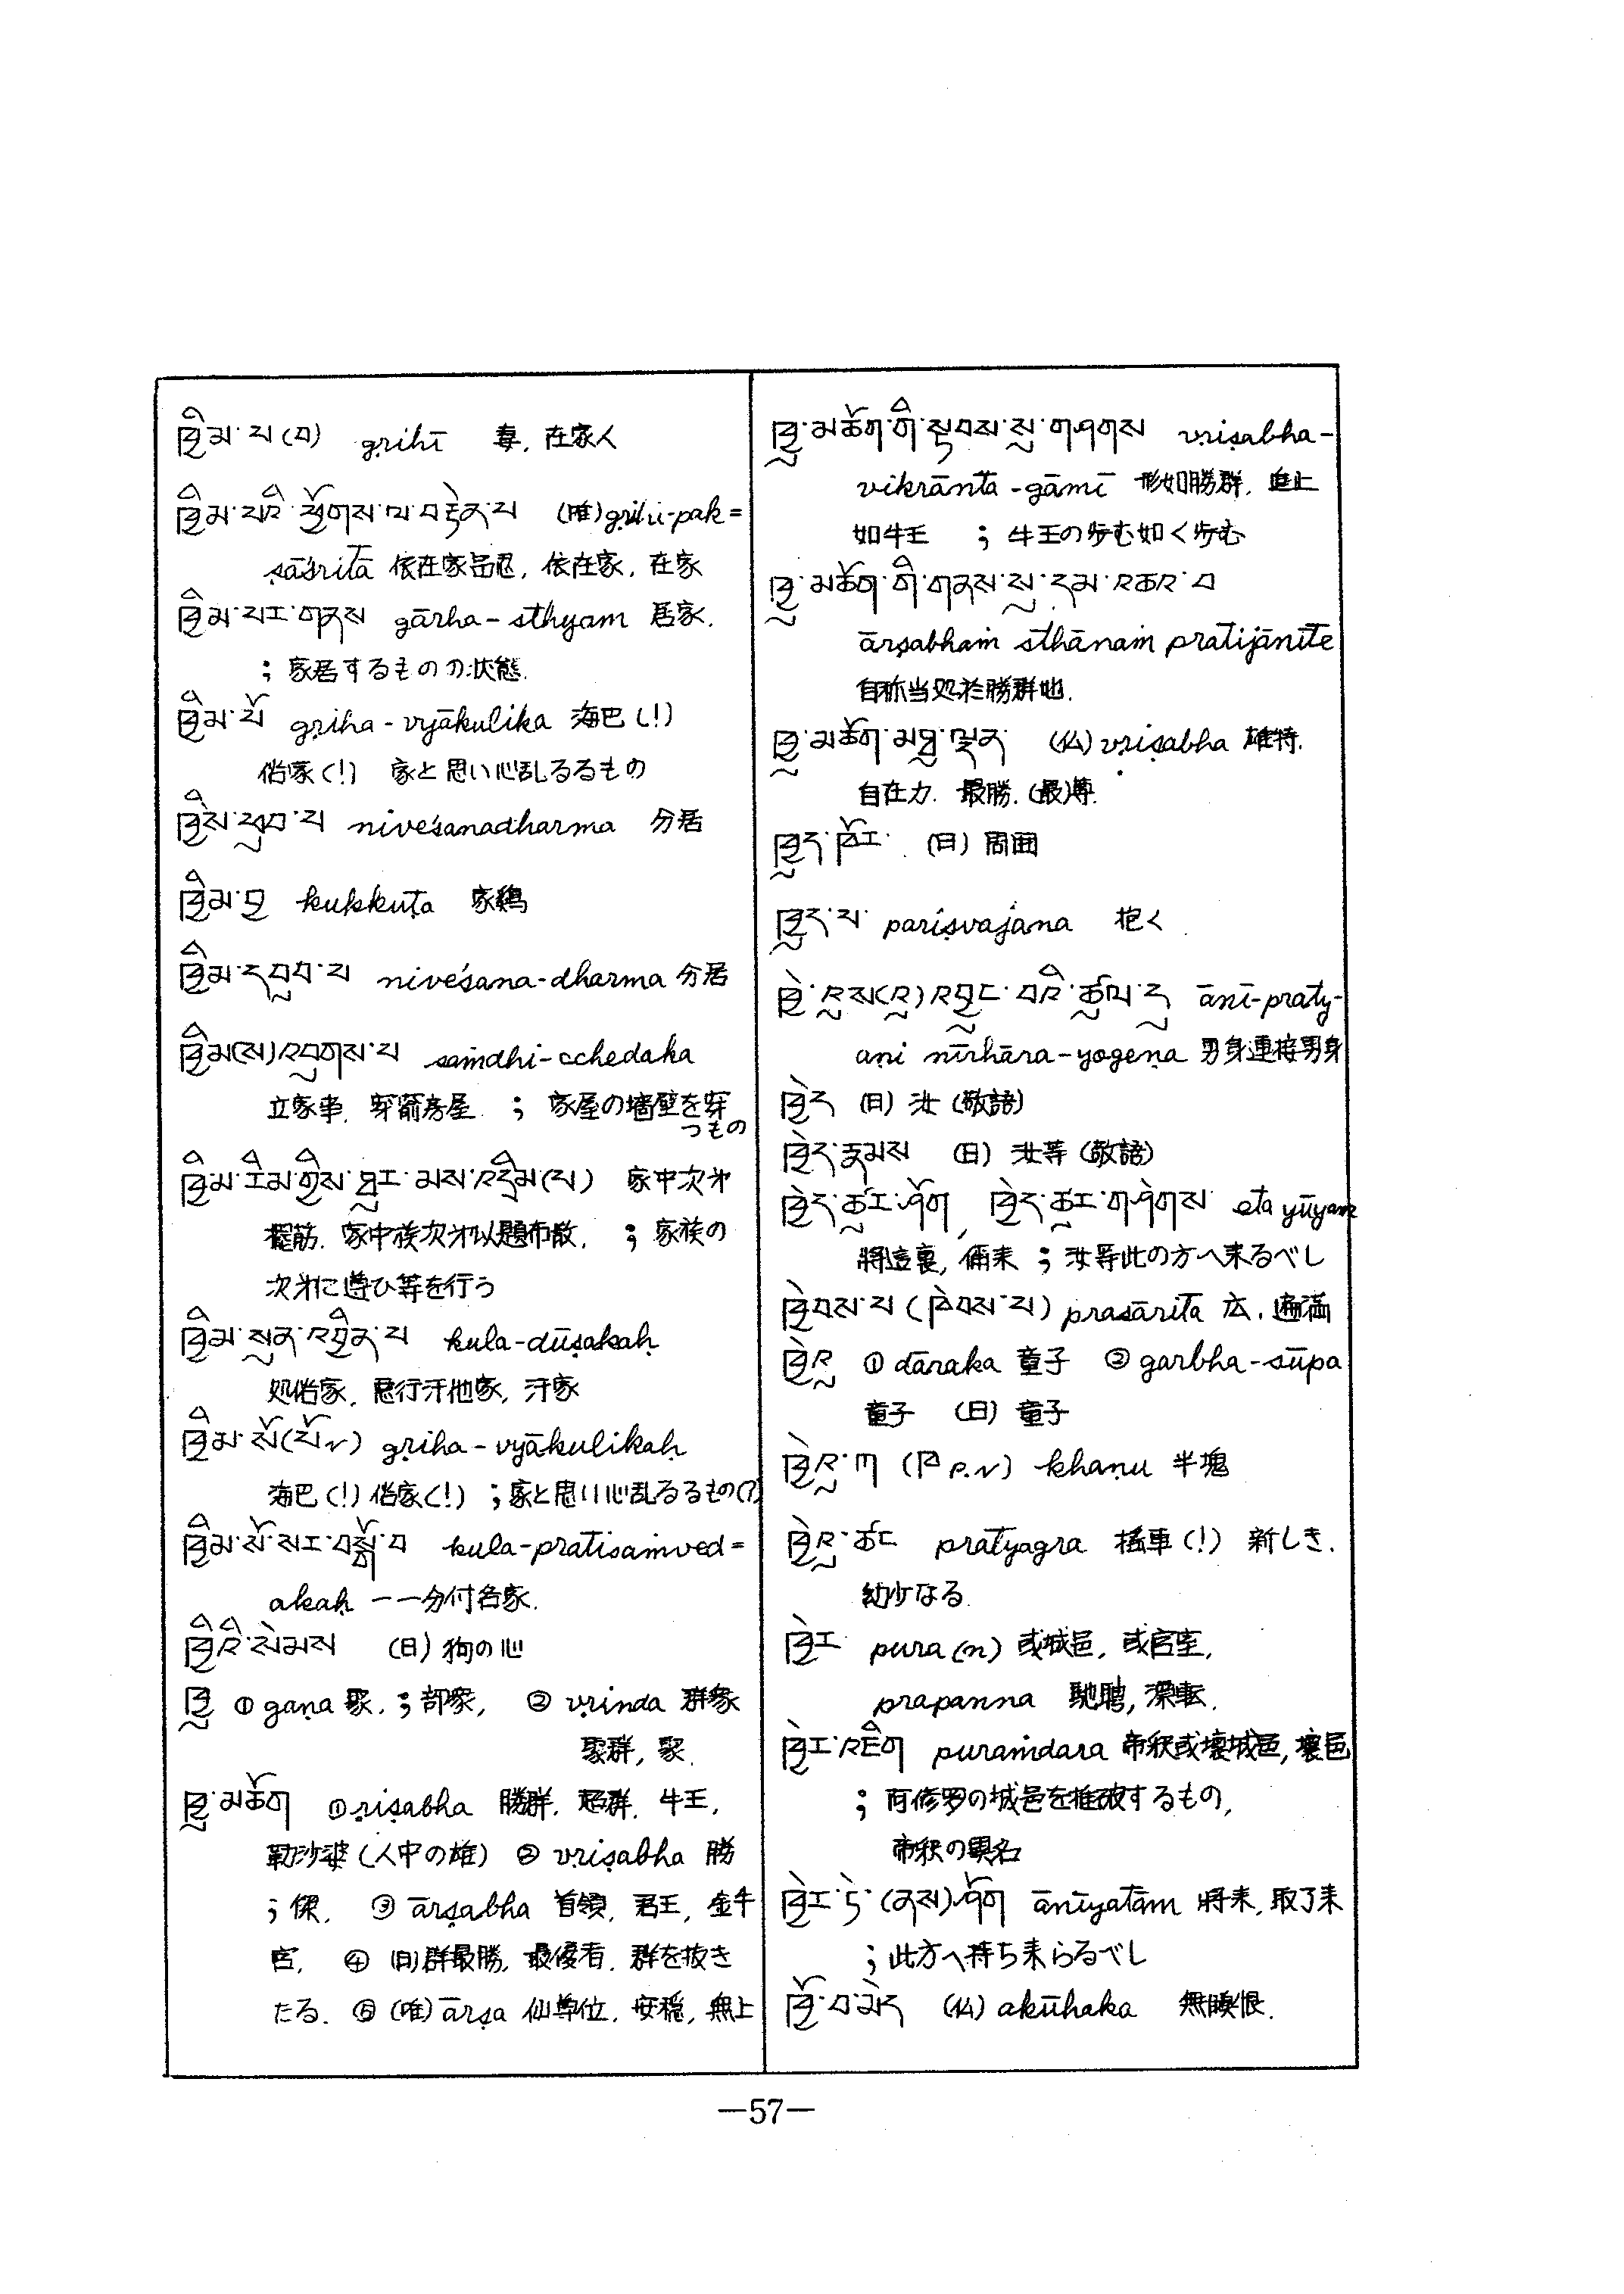 ཁྱིམ་པ(བ) gṛihī 妻, 在家人
ཁྱིམ་པའི་ཕྱོགས་ལ་བརྟེན་པ (唯)gṛihi-pak=
ṣāśritā 依在家, 依在家, 在家
ཁྱིམ་པར་གནས gārha-sthyam 居家.
; 家居するものの状態.
ཁྱིམ་པོ gṛiha-vyākulika 海巴(!)
俗家(!) 家と思い心乱るるもの
ཁྱིམ་ཕུབ་པ niveśanadharma 分居
ཁྱིམ་བྱ kukkuṭa 家鶏
ཁྱིམ་དབུབ་པ niveśana-dharma 分居
ཁྱིམ(ས)འབུགས་པ saṁdhi-cchedaka
立家事. 穿窬房屋 ; 家屋の墻壁を穿
つもの
ཁྱིམ་རིམ་གྱིས་ཐུར་མས་འདྲིམ(པ) 家中次第
擺筋. 家中族次第以題布散. ; 家族の
次第に遊ひ等を行う
ཁྱིམ་སུན་འབྱིན་པ kula-dūṣakaḥ
処俗家, 悪行汗他家, 汗家
ཁྱིམ་སོ(པོN) gṛiha-vyākulikaḥ
海巴(!)俗家(!) ; 家と思い心乱るるもの(?)
ཁྱིམ་སོ་སར་བསྒོ་བ kula-pratisaṁved=
akaḥ 一一分付各家.
ཁྱིའི་སེམས (日)狗の心
ཁྱུ ① gaṇa 聚. ; 部衆, ② vṛinda 群衆
聚群, 聚.
ཁྱུ་མཆོག ① ṛiṣabha 勝群. 超群. 牛王,
勒沙婆(人中の雄) ② vṛiṣabha 勝
; 傑. ③ ārṣabha 首領, 君王, 金牛
宮, ④ (日)群最勝, 最優者. 群を抜き
たる. ⑤ (唯)ārṣa 仙尊位. 安穏, 無上
ཁྱུ་མཆོག་གི་སྟབས་སུ་གཤགས vṛiṣabha-
vikrānta-gāmī 形如勝群. 進止
如牛王 ; 牛王の歩む如く歩む
ཁྱུ་མཆོག་གི་གནས་སུ་དམ་འཆའ་བ
ārṣabhaṁ sthānaṁ pratijānīte
自称当処於勝群地.
ཁྱུ་མཆོག་མཐུ་ལྡན (仏)vṛiṣabha 雄特.
自在力. 最勝. (最)尊.
ཁྱུད་ཁོར (日)周囲
ཁྱུད་པ pariṣvajana 抱く
ཁྱེ་འུས(འུ)འབྱུང་བའི་ཚུལ་དུ ānī-praty-
aṇi nīrhāra-yogeṇa 男身連接男身
ཁྱེད (日)汝(敬語)
ཁྱེད་རྣམས (日)汝等(敬語)
ཁྱེད་ཚུར་ཤོག, ཁྱེད་ཚུར་གཤེགས eta yūyam
將這裏, 俑来 ; 汝等此の方へ来るべし
ཁྱེབས་པ(ཁེབས་པ) prasārita 広. 遍満
ཁྱེའུ ① dāraka 童子 ② garbha-sūpa
童子 (日)童子
ཁྱེའུ་ཀ (ཁ P.N) khaṇu 半塊
ཁྱེའུ་ཚང pratyagra 揺車(!) 新しき.
幼少なる
ཁྱེར pura(n) 或城邑, 或宮室,
prapanna 馳騁, 深転.
ཁྱེར་འཇིག puraṁdara 帝釈或壊城邑, 壊邑
; 阿修罗の城邑を摧破するもの,
帝釈の異名
ཁྱེར་དེ་(ནས)ཤོག ānīyatām 將来, 取了来
; 此方へ持ち来らるべし
ཁྱོ་བ་མེད (仏)akūhaka 無瞋恨.
—57—